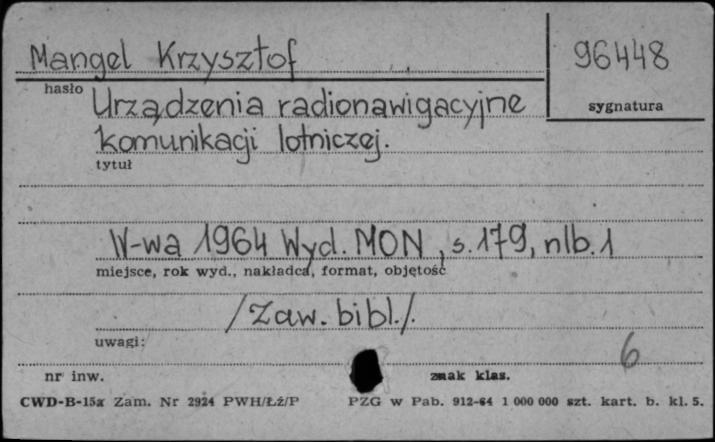 Mangel Krzysztof
96448
hasło
sygnatura
Urządzenia radionawigacyjne
komunikacji lotniczej.
tytuł
W-wa 1964 Wyd. MON, s. 179, nlb. 1
miejsce, rok wyd., nakładca, format, objętość
/Zaw. bibl./.
uwagi:
6
nr inw.
znak klas.
CWD-B-15a Zam. Nr 2924 PWH/Łź/P
PZG w Pab. 912-64 1 000 000 szt. kart. b. kl. 5.